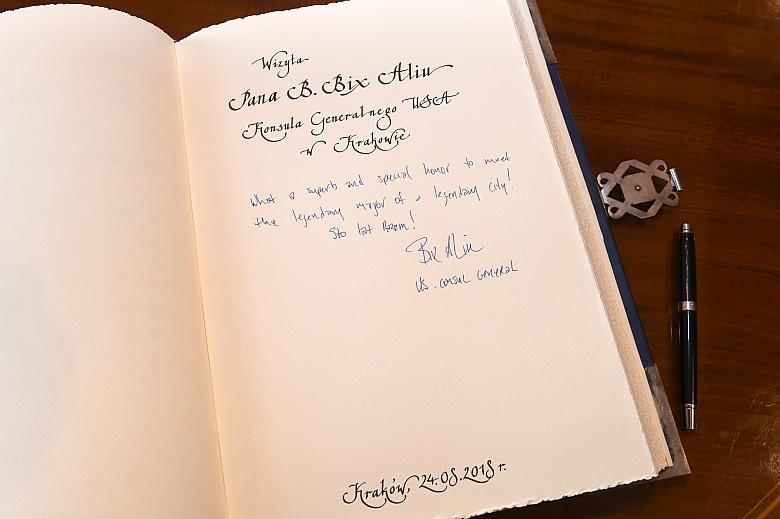 Wizyta
Pana B. Bix Aliu
Konsula Generalnego USA
w Krakowie
What a superb and special honor to meet
the legendary mayor of a legendary city!
Sto lat Razem!
Bix Aliu
US. Consul General
Kraków, 24.08.2018 r.